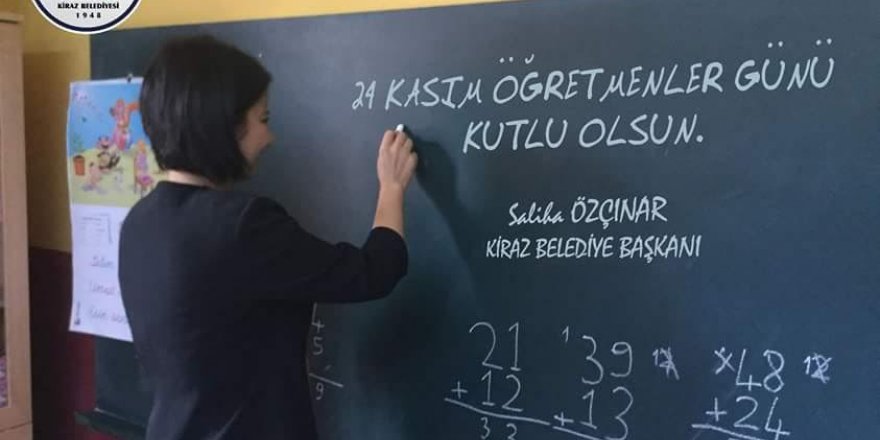 KİRAZ BELEDİYESİ
1948
24 KASIM ÖĞRETMENLER GÜNÜ
KUTLU OLSUN.
Saliha ÖZÇINAR
KİRAZ BELEDİYE BAŞKANI
4
5
9
21
+12
32
1
39
+13
48
+24